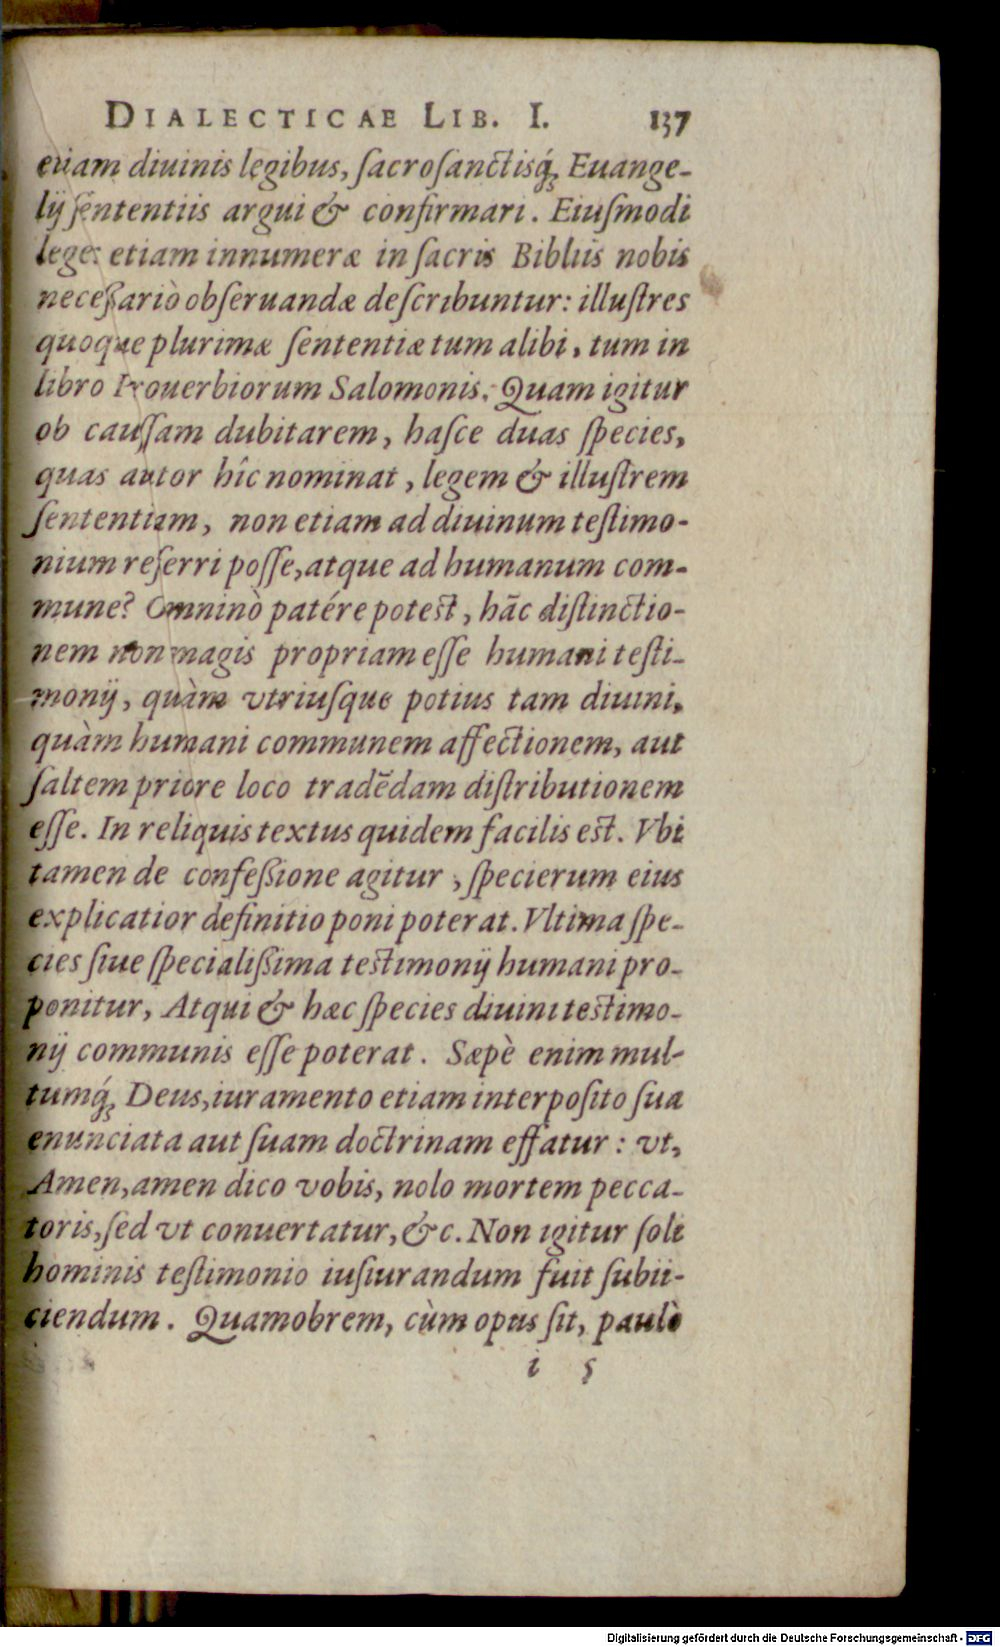 DIALECTICAE LIB. I. 137
etiam diuinis legibus, ſacroſanctisq́ꝫ Euange-
lij ſententiis argui & confirmari. Eiuſmodi
leges etiam innumeræ in ſacris Bibliis nobis
neceßariò obſeruandæ deſcribuntur: illuſtres
quoque plurimæ ſententiæ tum alibi, tum in
libro Prouerbiorum Salomonis. Quam igitur
ob cauſſam dubitarem, haſce duas ſpecies,
quas autor hîc nominat, legem & illuſtrem
ſententiam, non etiam ad diuinum teſtimo-
nium referri poſſe, atque ad humanum com-
mune? Omninò patére potest, hāc diſtinctio-
nem non magis propriam eſſe humani teſti-
monij, quàm vtriuſque potius tam diuini,
quàm humani communem affectionem, aut
ſaltem priore loco tradēdam diſtributionem
eſſe. In reliquis textus quidem facilis est. Vbi
tamen de confeßione agitur, ſpecierum eius
explicatior definitio poni poterat. Vltima ſpe-
cies ſiue ſpecialißima testimonij humani pro-
ponitur, Atqui & hæc ſpecies diuini testimo-
nij communis eſſe poterat. Sæpè enim mul-
tumq́ꝫ Deus, iuramento etiam interpoſito ſua
enunciata aut ſuam doctrinam effatur: vt,
Amen, amen dico vobis, nolo mortem pecca-
toris, ſed vt conuertatur, &c. Non igitur ſoli
hominis teſtimonio iuſiurandum fuit ſubii-
ciendum. Quamobrem, cùm opus ſit, paulò
i 5
Digitalisierung gefördert durch die Deutsche Forschungsgemeinschaft - DFG